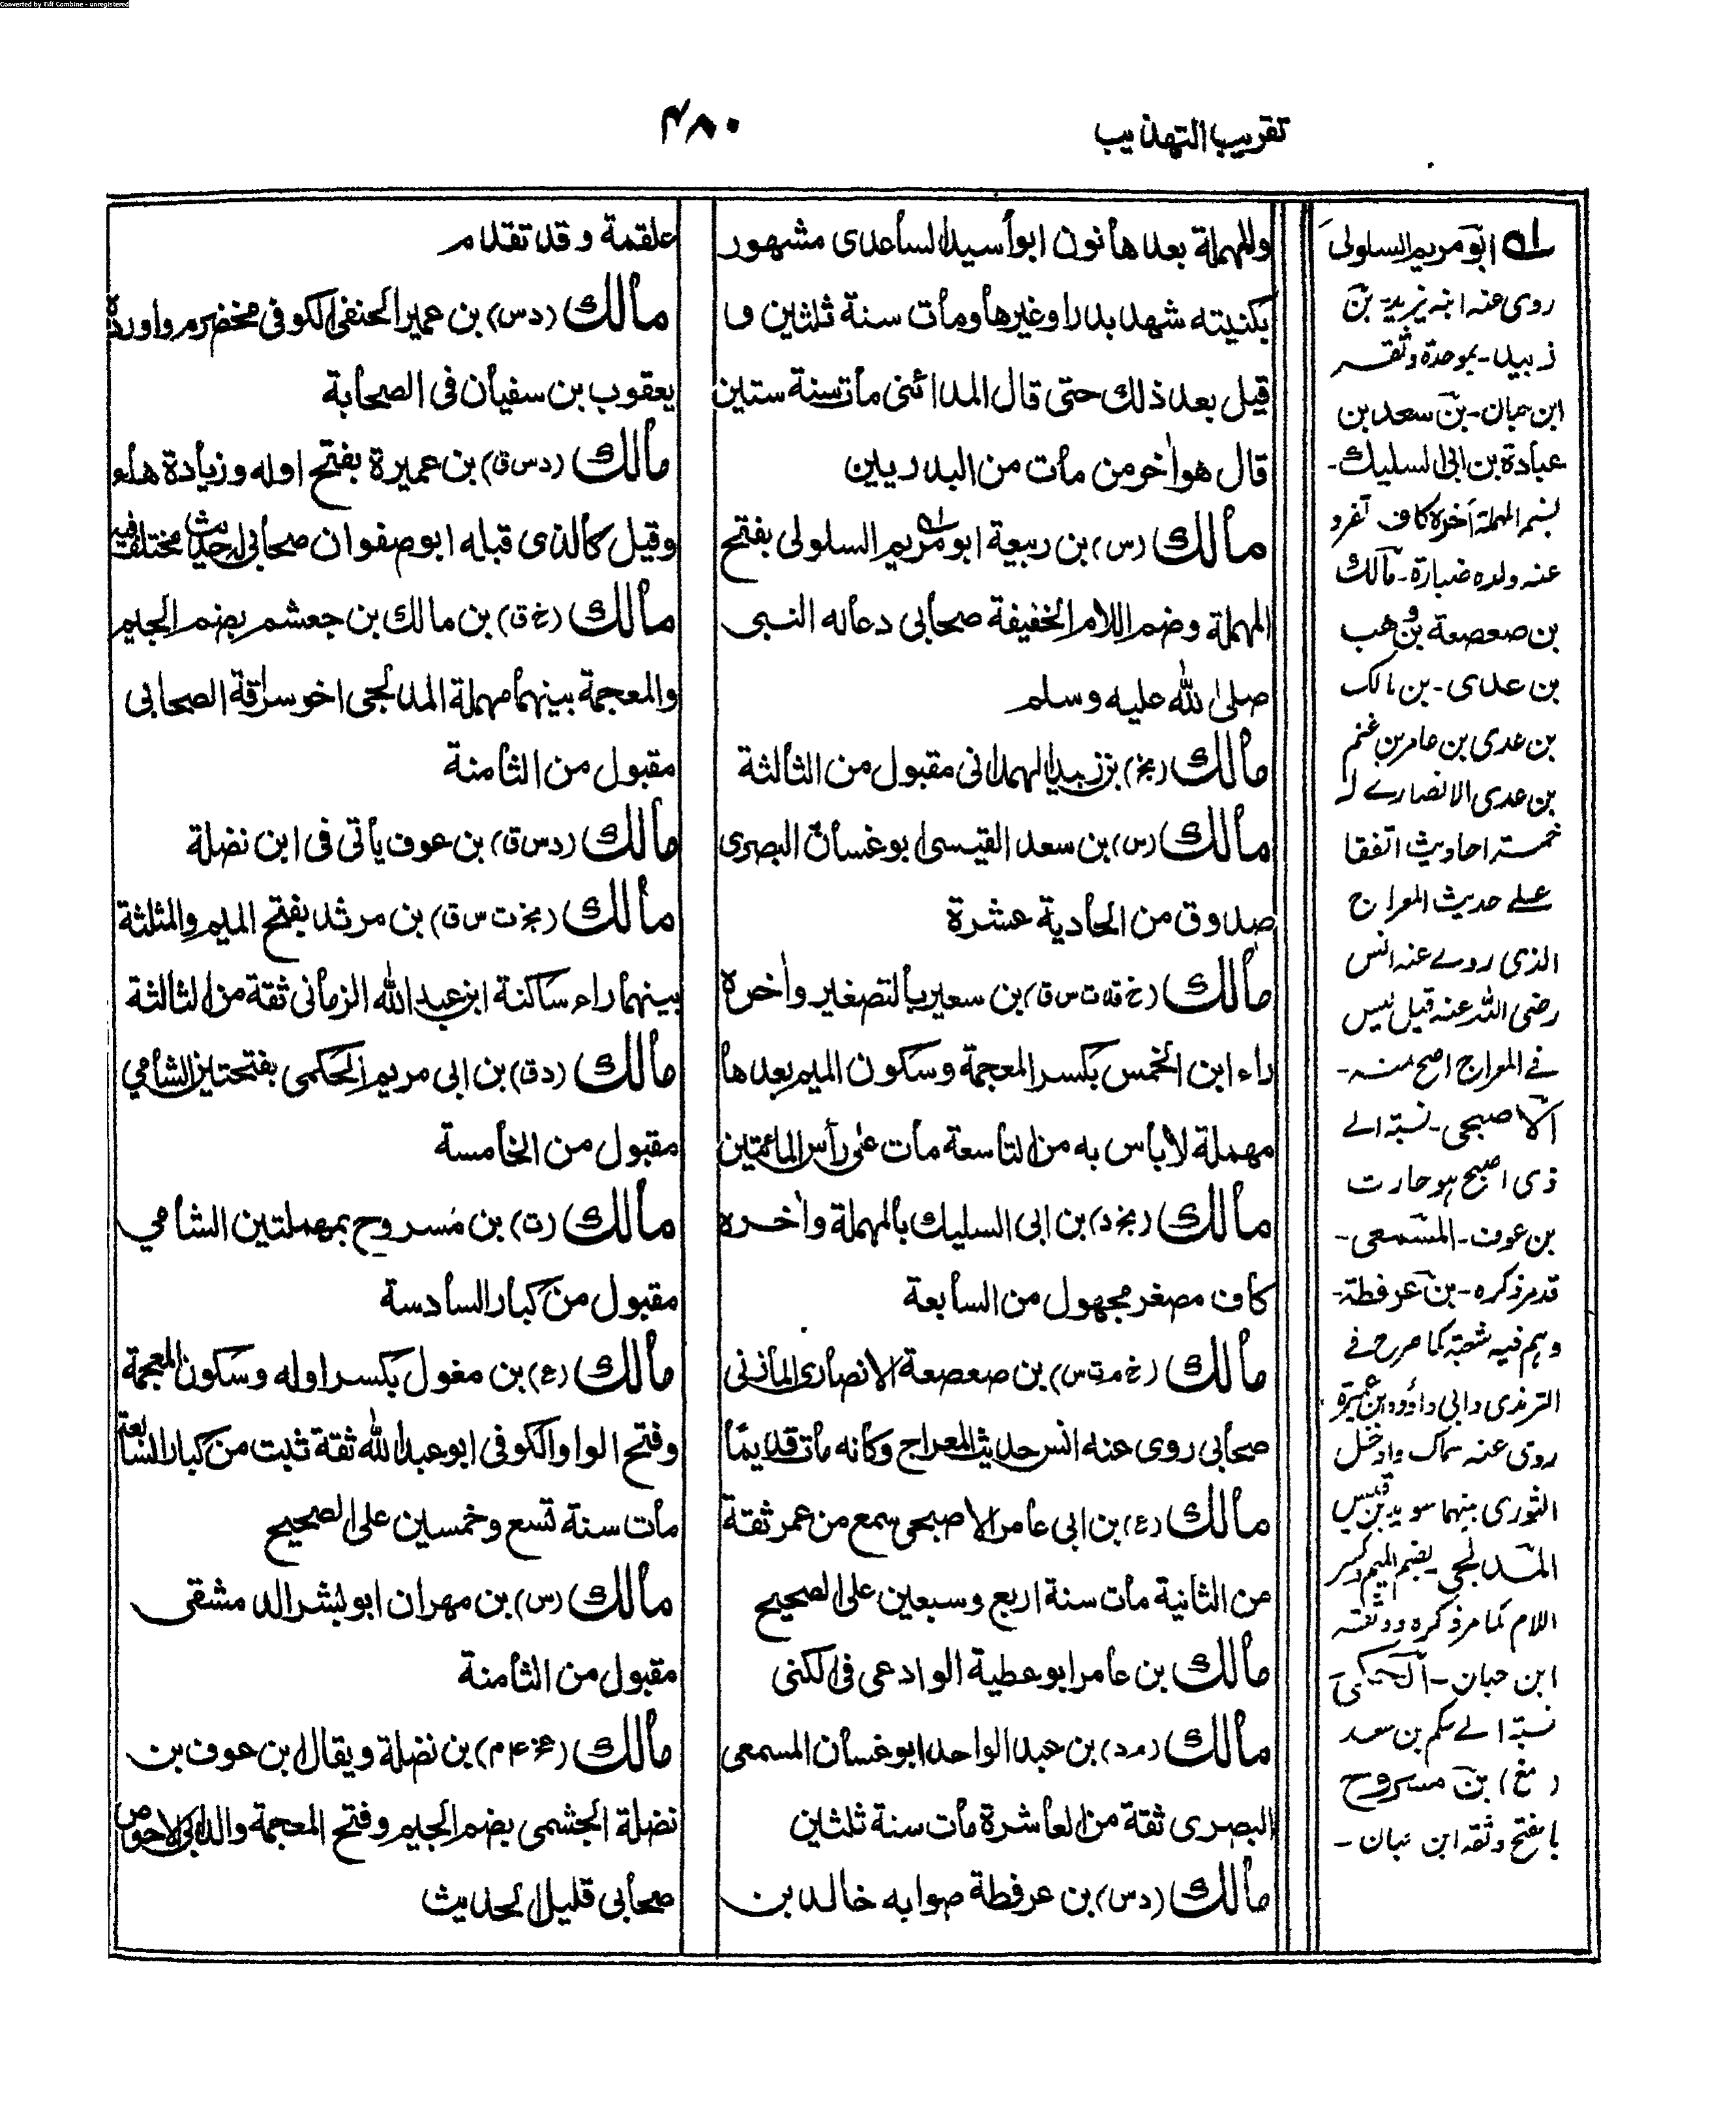 Converted by Tiff Combine - unregistered
تقريب التهذيب
۴۸۰
والمهملة بعدها نون ابو أسيد الساعدى مشهور
بكنيته شهد بدرا وغيرها ومات سنة ثلثين و
قيل بعد ذلك حتى قال المدائنى مات سنة ستين
قال هو اٰخر من مات من البدريين
مالك (س) بن ربيعة ابو مريم السلولى بفتح
المهملة وضم اللام الخفيفة صحابى دعا له النبى
صلى الله عليه وسلم
مالك (بخ) بن زبيد الهمدانى مقبول من الثالثة
مالك (س) بن سعد القيسى ابو غسان البصرى
صدوق من الحادية عشرة
مالك (خ قد ت س ق) بن سعير بالتصغير واٰخره
راء ابن الخمس بكسر المعجمة وسكون الميم بعدها
مهملة لا بأس به من التاسعة مات على رأس المائتين
مالك (بخ د) بن ابى السليك بالمهملة واٰخره
كاف مصغر مجهول من السابعة
مالك (خ م ت س) بن صعصعة الانصارى المازنى
صحابى روى عنه انس حديث المعراج وكأنه مات قديمًا
مالك (ع) بن ابى عامر الاصبحى سمع من عمر ثقة
من الثانية مات سنة اربع وسبعين على الصحيح
مالك بن عامر ابو عطية الوادعى فى الكنى
مالك (م د) بن عبد الواحد ابو غسان المسمعى
البصرى ثقة من العاشرة مات سنة ثلثين
مالك (د س) بن عرفطة صوابه خالد بن
علقمة وقد تقدم
مالك (د س) بن عمير الحنفى الكوفى مخضرم واورده
يعقوب بن سفيان فى الصحابة
مالك (د س ق) بن عميرة بفتح اوله وزيادة هاء
وقيل كالذى قبله ابو صفوان صحابى له حديث مختلف فيه
مالك (خ ق) بن مالك بن جعشم بضم الجيم
والمعجمة بينهما مهملة المدلجى اخو سراقة الصحابى
مقبول من الثامنة
مالك (د س ق) بن عوف يأتى فى ابن نضلة
مالك (بخ ت س ق) بن مرثد بفتح الميم والمثلثة
بينهما راء ساكنة ابن عبد الله الزمانى ثقة من الثالثة
مالك (د ق) بن ابى مريم الحكمى بفتحتين الشامى
مقبول من الخامسة
مالك (ت) بن مسروح بمهملتين الشامى
مقبول من كبار السادسة
مالك (ع) بن مغول بكسر اوله وسكون المعجمة
وفتح الواو الكوفى ابو عبد الله ثقة ثبت من كبار السابعة
مات سنة تسع وخمسين على الصحيح
مالك (س) بن مهران ابو بشر الدمشقى
مقبول من الثامنة
مالك (عخ م ۴) بن نضلة ويقال ابن عوف بن
نضلة الجشمى بضم الجيم وفتح المعجمة والد ابى الاحوص
صحابى قليل الحديث
ابو مريم السلولى
روى عنه ابنه يزيد بن
وثقه
ابن حبان - بن سعد بن
عبادة بن ابى السليك -
بضم المهملة آخره كاف تفرد
عنه ولده ضبارة - مالك
بن صعصعة بن وهب
بن عدى - بن مالك
بن عدى بن عامر بن غنم
بن عدى الانصارے له
خمسة احاديث اتفقا
علے حديث المعراج
الذى روے عنه انس
رضى الله عنه قيل ليس
فے المعراج اصح منه -
الاصبحى - نسبة الے
ذى اصبح هو حارث
بن عوف - المسمعى -
قد مر ذكره - بن عرفطة -
وهم فيه شعبة كما صرح فے
الترمذى وابى داؤد بن عميرة
روى عنه سماك وادخل
الثورى بينهما سويد بن قيس
المدلجى - بضم الميم وكسر
اللام كما مر ذكره ووثقه
ابن حبان - الحكمى
نسبة الے حكم بن سعد
(مغ) بن مسروح
بالفتح وثقه ابن حبان -